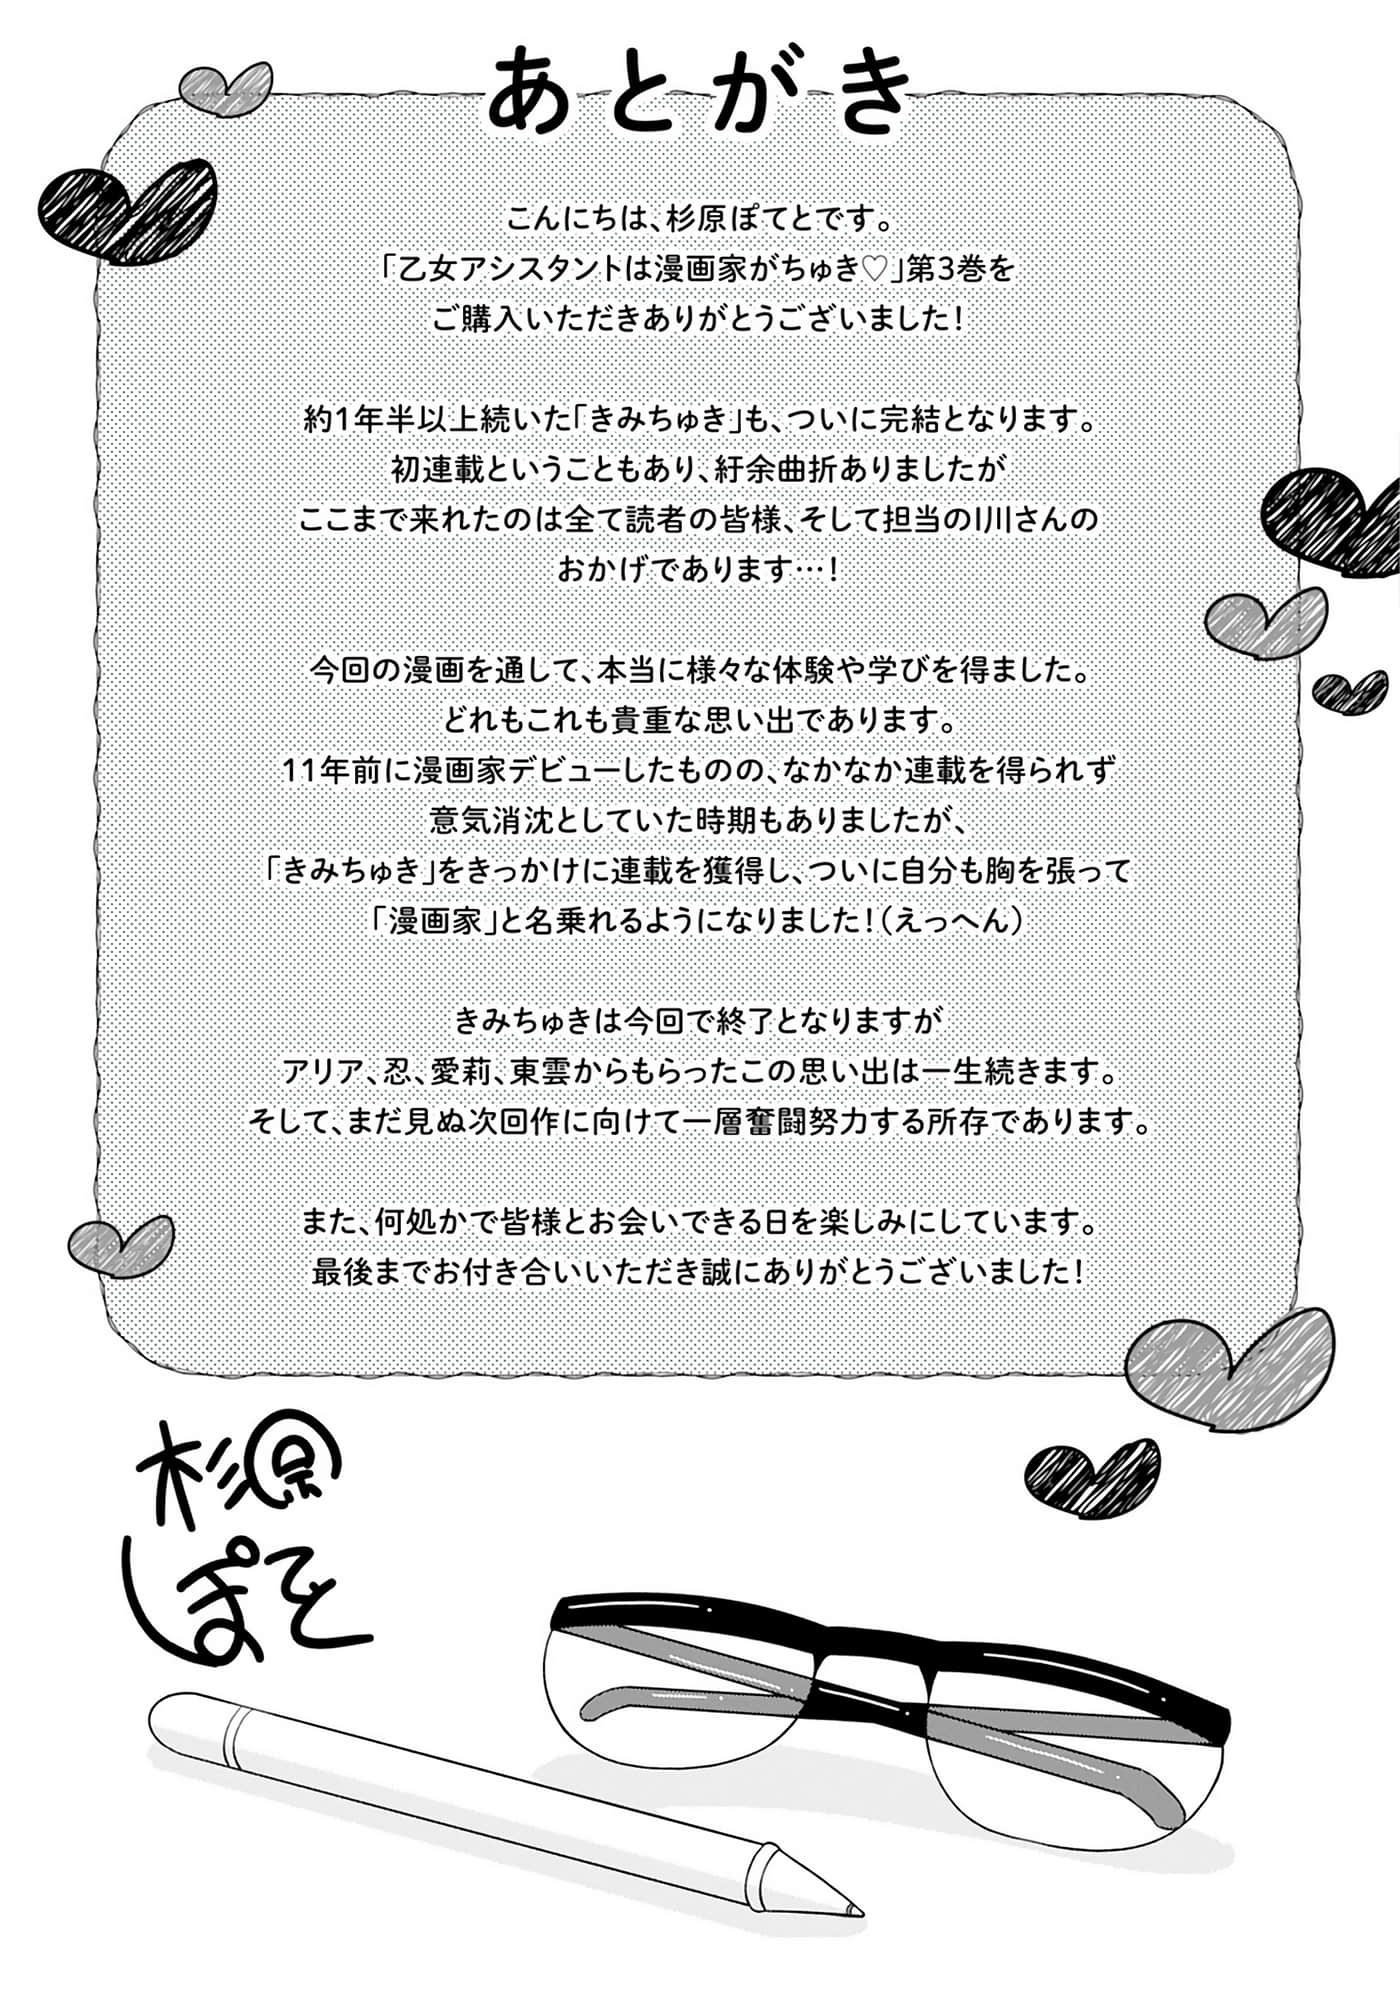 あとがき
こんにちは、杉原ぽてとです。
「乙女アシスタントは漫画家がちゅき♡」第3巻を
ご購入いただきありがとうございました！
約1年半以上続いた「きみちゅき」も、ついに完結となります。
初連載ということもあり、紆余曲折ありましたが
ここまで来れたのは全て読者の皆様、そして担当のI川さんの
おかげであります…！
今回の漫画を通して、本当に様々な体験や学びを得ました。
どれもこれも貴重な思い出であります。
11年前に漫画家デビューしたものの、なかなか連載を得られず
意気消沈としていた時期もありましたが、
「きみちゅき」をきっかけに連載を獲得し、ついに自分も胸を張って
「漫画家」と名乗れるようになりました！（えっへん）
きみちゅきは今回で終了となりますが
アリア、忍、愛莉、東雲からもらったこの思い出は一生続きます。
そして、まだ見ぬ次回作に向けて一層奮闘努力する所存であります。
また、何処かで皆様とお会いできる日を楽しみにしています。
最後までお付き合いいただき誠にありがとうございました！
杉原
ぽてと